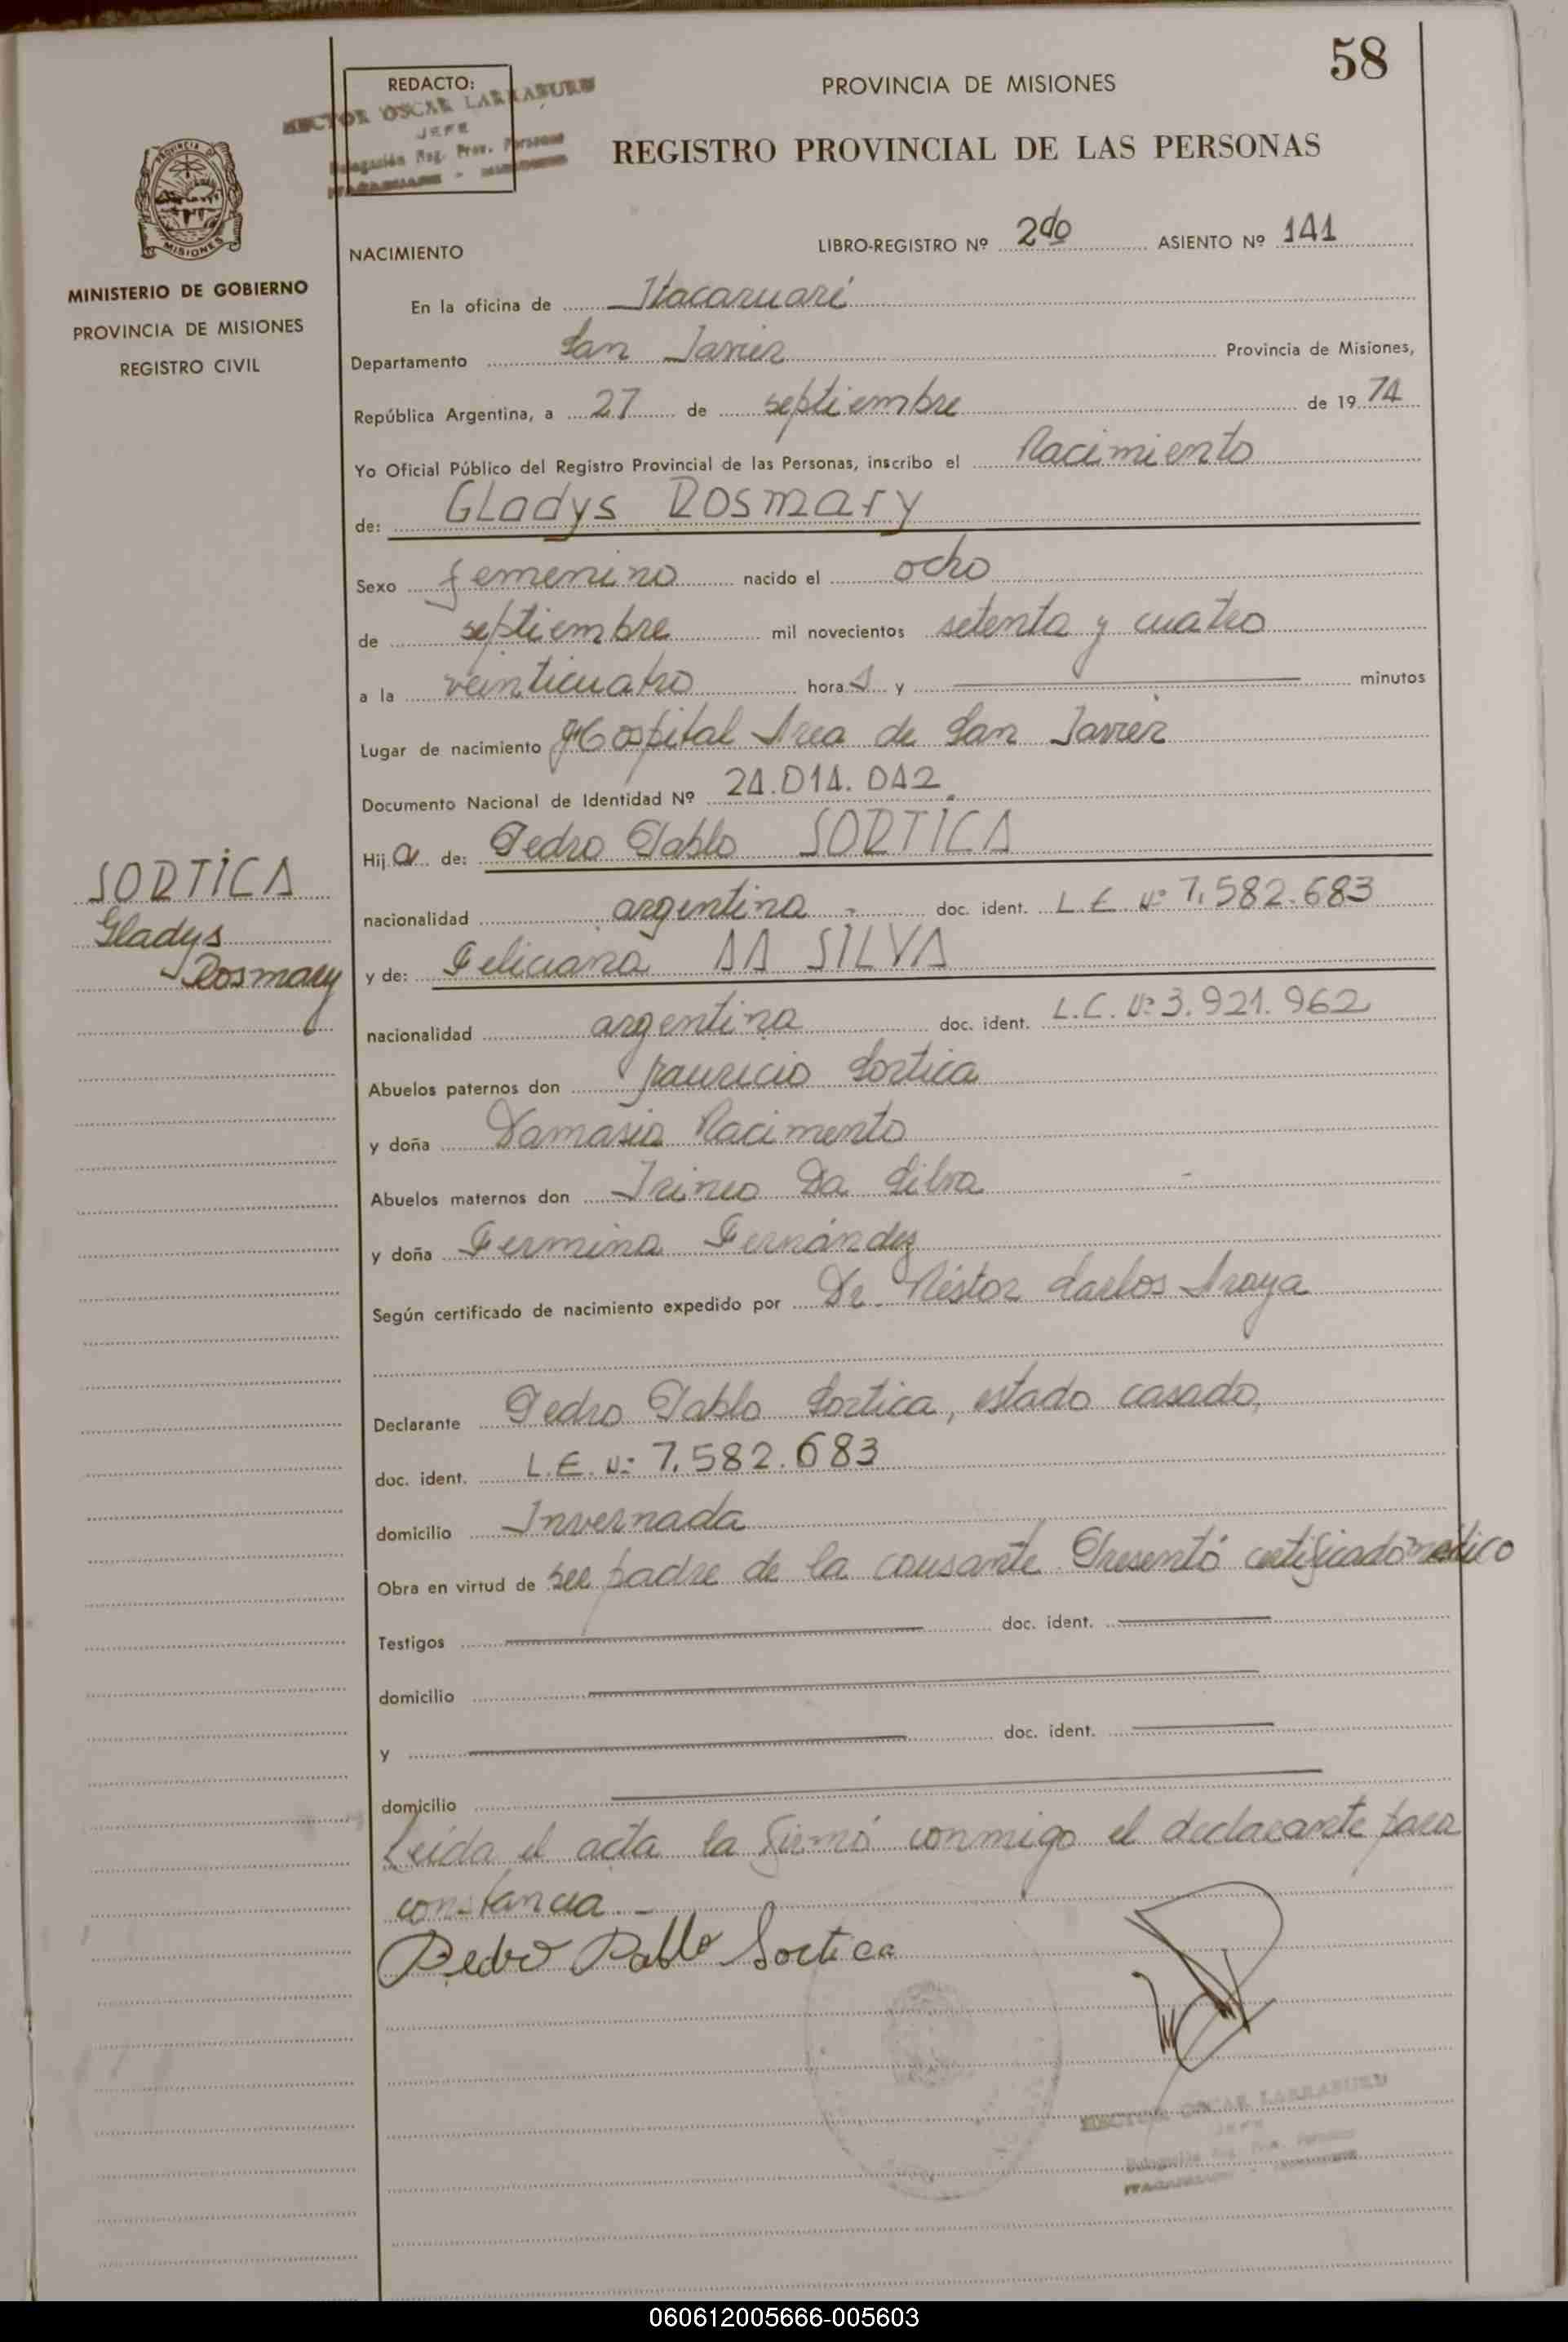 58
REDACTO:
HECTOR OSCAR LARRABURU
JEFE
Delegación Reg. Prov. Personas
PROVINCIA DE MISIONES
REGISTRO PROVINCIAL DE LAS PERSONAS
PROVINCIA DE
MISIONES
MINISTERIO DE GOBIERNO
PROVINCIA DE MISIONES
REGISTRO CIVIL
NACIMIENTO
LIBRO-REGISTRO Nº 2do ASIENTO Nº 141
En la oficina de Itacaruaré
Departamento San Javier Provincia de Misiones,
República Argentina, a 27 de septiembre de 1974
Yo Oficial Público del Registro Provincial de las Personas, inscribo el Nacimiento
de: GLadys ROSmary
Sexo femenino nacido el ocho
de septiembre mil novecientos setenta y cuatro
a la veinticuatro horas y minutos
Lugar de nacimiento Hospital Area de San Javier
Documento Nacional de Identidad Nº 24.014.042.
Hija de: Pedro Pablo SORTICA
SORTICA
Gladys
Rosmary
nacionalidad argentina - doc. ident. L.E. Nº 7.582.683
y de: Feliciana DA SILVA
nacionalidad argentina doc. ident. L.C. Nº 3.921.962
Abuelos paternos don Mauricio Sortica
y doña Damasia Nacimento
Abuelos maternos don Irineo Da Silva
y doña Fermina Fernández
Según certificado de nacimiento expedido por Dr. Néstor Carlos Araya
Declarante Pedro Pablo Sortica, estado casado,
doc. ident. L.E. Nº 7.582.683
domicilio Invernada
Obra en virtud de ser padre de la causante. Presentó certificado médico
Testigos doc. ident.
domicilio
y doc. ident.
domicilio
Leida el acta la firmó conmigo el declarante para
constancia.-
Pedro Pablo Sortica
HECTOR OSCAR LARRABURU
JEFE
Delegación Reg. Prov. Personas
060612005666-005603